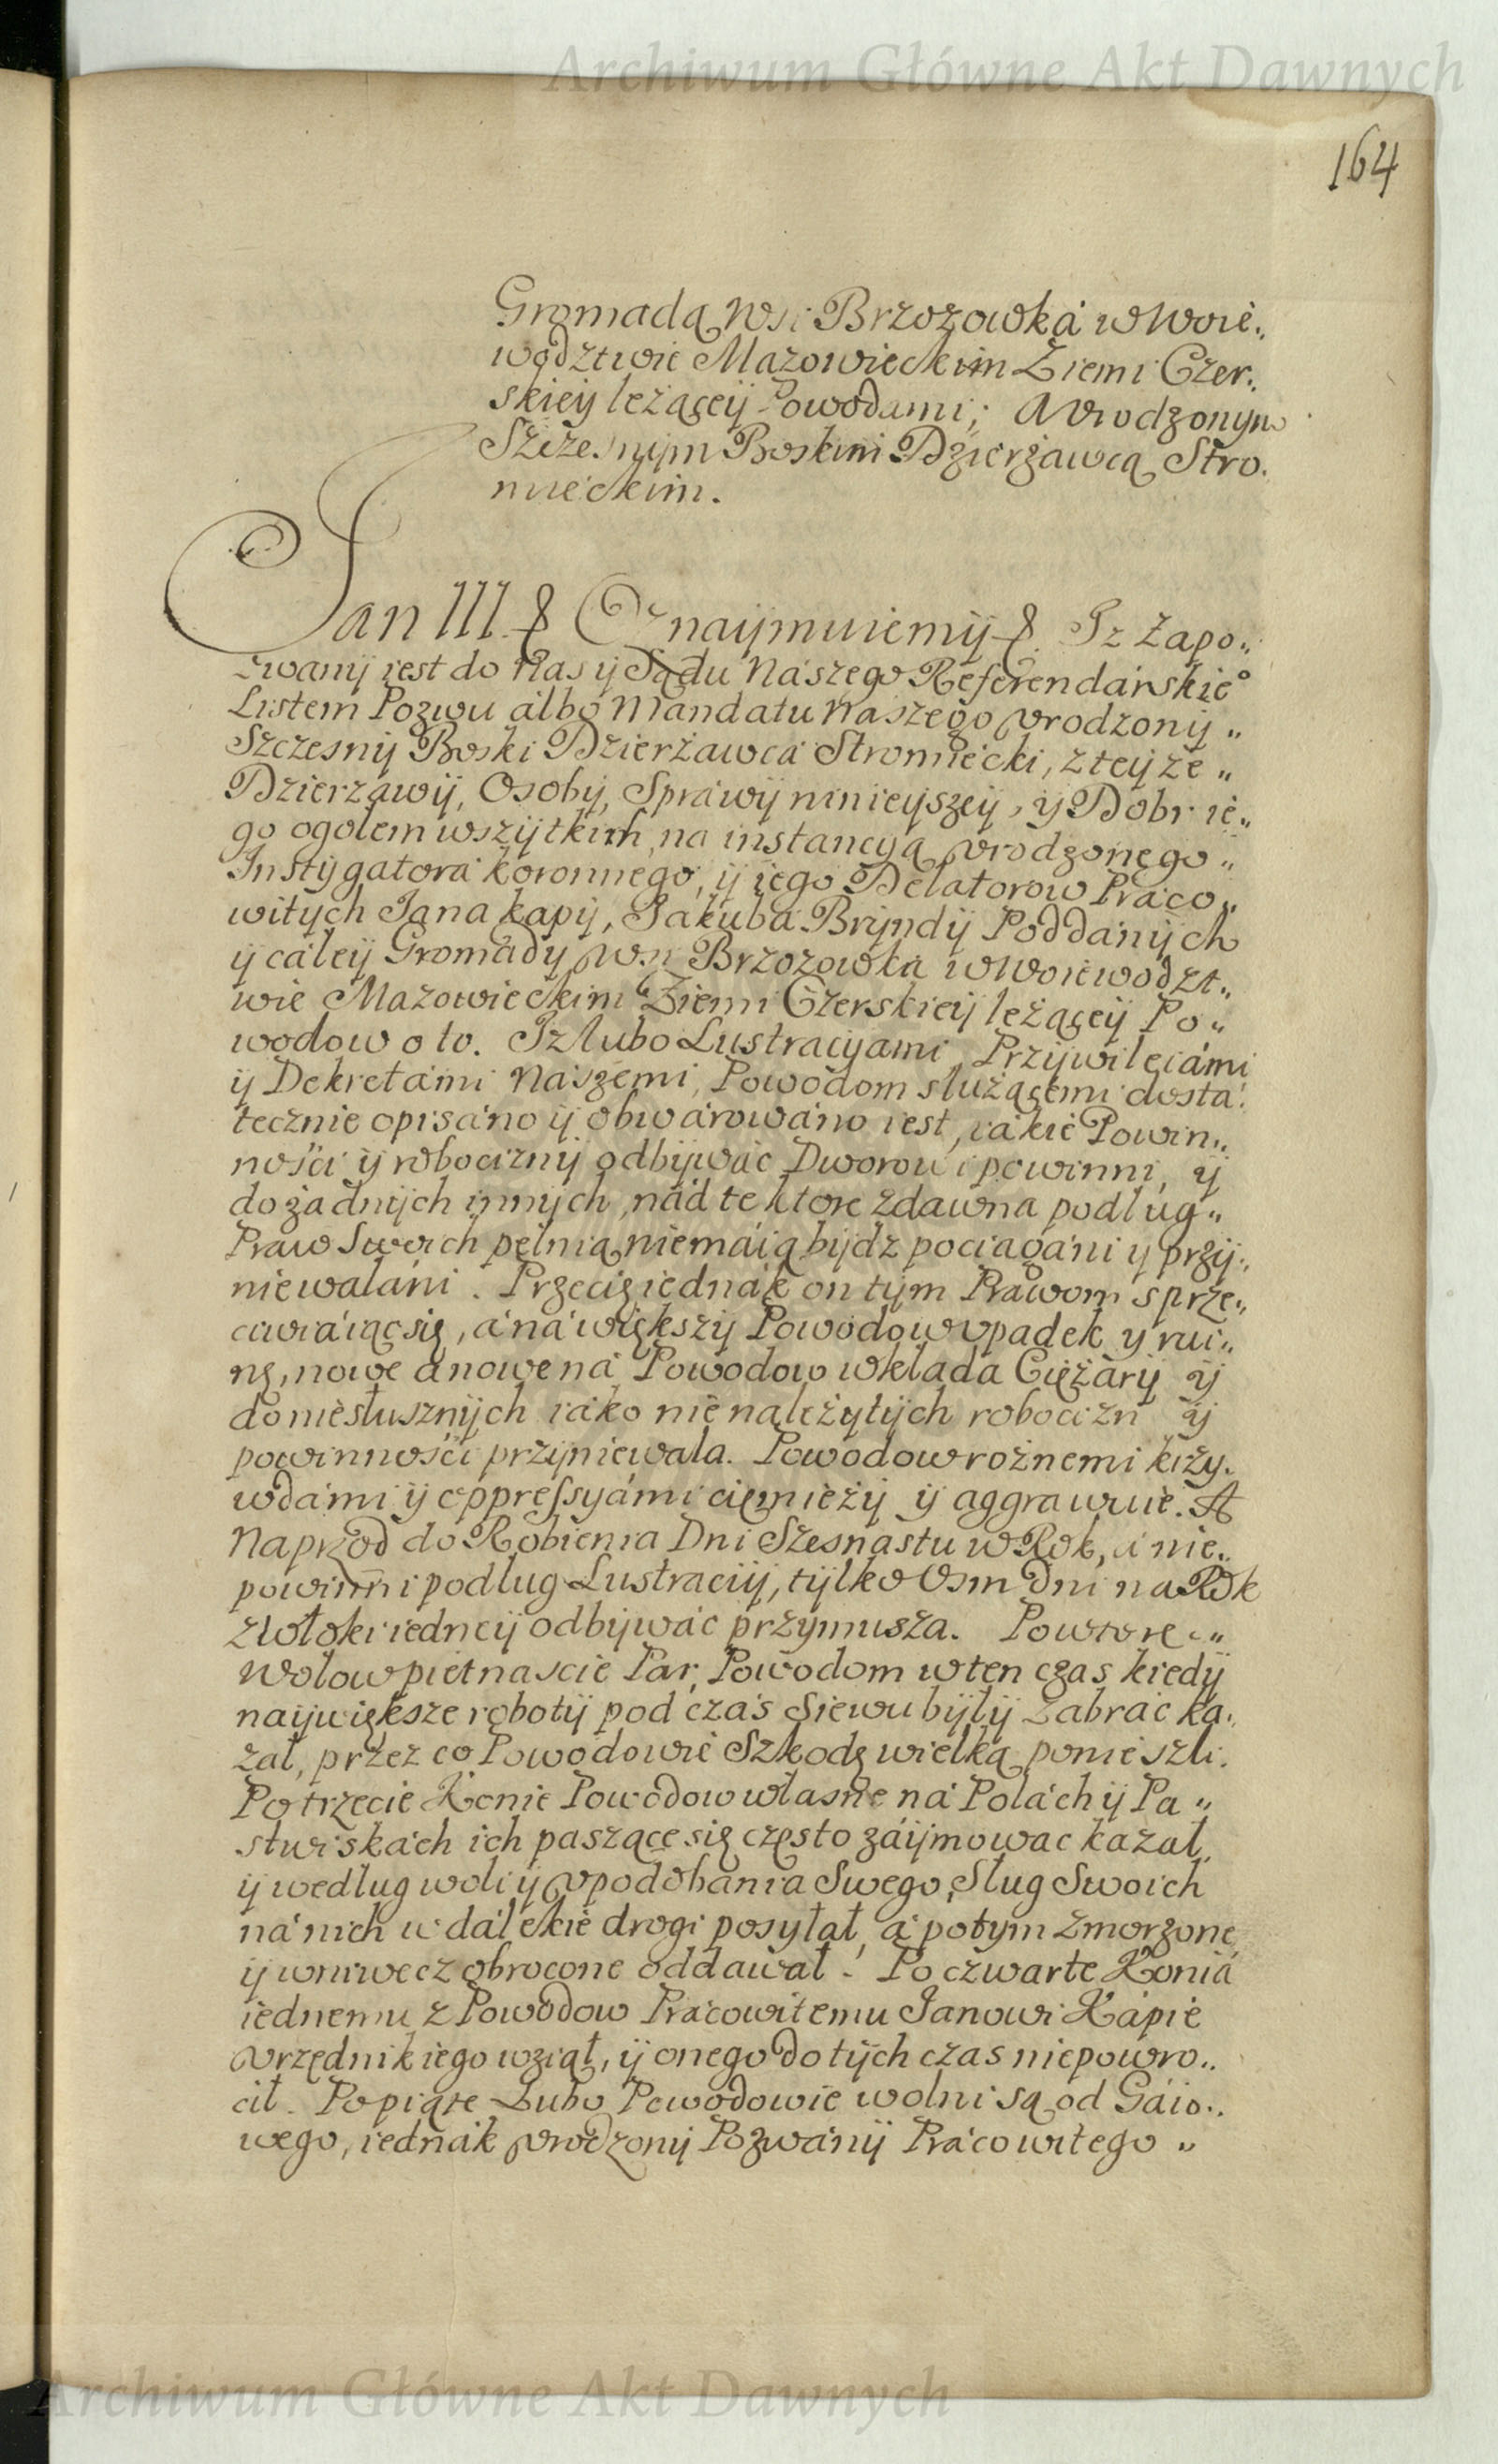 Archiwum Główne Akt Dawnych
164
Gromadą Wsi Brzozowká w Woie„
wodztwie Mazowieckim Ziemi Czer„
skieÿ leżąceÿ Powodami; A Vrodzonym
Szczesnym Boskim Dzierżawcą Stro„
mieckim.
Jan III. & Oznaÿmuiemÿ &. Jz Zapo„
zwanÿ iest do Nas ÿ Sądu Nászego Referendárskie°
Listem Pozwu álbo Mandatu Naszego Vrodzonÿ „
Szczesnÿ Boski Dzierżawcá Stromiecki, z teÿże „
Dzierżáwÿ, Osobÿ, Spráwÿ ninieÿszeÿ, ÿ Dobr ie„
go ogołem wszÿtkich, na instancyą Vrodzonego „
Instÿgatorá Koronnego, ÿ iego Delatorow Práco„
witych Jana Kapÿ, Jakubá Brÿndÿ Poddánÿch
ÿ cáłeÿ Gromadÿ Wsi Brzozowká w Woiewodzt„
wie Mazowieckim Ziemi Czerskieÿ leżąceÿ Po„
wodow o to. Jz lubo Lustracÿami, Przÿwileiámi
ÿ Dekretámi Nászemi, Powodom służącemi dostá„
tecznie opisáno ÿ obwárowáno iest, iákie Powin„
ności ÿ robociznÿ odbÿwáć Dworowi powinni, ÿ
do żadnÿch innÿch, nád te ktore zdawna podług „
Praw Swoich pełnią niemáią bÿdz pociągáni ÿ przÿ„
niewaláni. Przecię iednák on tÿm Práwom sprze„
ciwiáiąc się, á ná większÿ Powodow Vpadek ÿ rui„
nę, nowe á nowe ná Powodow wkłada Ciężárÿ ÿ
do niesłusznÿch iáko nie należÿtÿch robocizn ÿ
powinności przÿniewala. Powodow rożnemi krzÿ„
wdámi ÿ oppressyámi ciemiężÿ ÿ aggrawuie. A
Naprzod do Robienia Dni Szesnastu w Rok, á nie„
powinni podług Lustraciÿ, tÿlko Osm Dni na Rok
z Włoki iedneÿ odbÿwáć przÿmusza. Powtore „
Wołow piętnascie Par, Powodom w ten czas kiedÿ
naÿwiększe robotÿ pod czás Siewu bÿłÿ Zabráć ka„
zał, przez co Powodowie Szkodę wielką ponieśli.
Po trzecie Konie Powodow własne ná Polách ÿ Pa„
stwiskách ich paszące się często záÿmować kazał,
ÿ według woli ÿ Vpodobania Swego, Sług Swoich
ná nich w dálekie drogi posyłał, á potym zmorzone
ÿ wniwecz obrocone oddawał. Po czwarte Koniá
iednemu z Powodow Prácowitemu Janowi Kápie
Vrzędnik iego wziął, ÿ onego do tÿch czas niepowro„
cił. Po piąte Lubo Powodowie wolni są od Gáio„
wego, iednák Vrodzonÿ Pozwánÿ Prácowitego „
Archiwum Główne Akt Dawnych